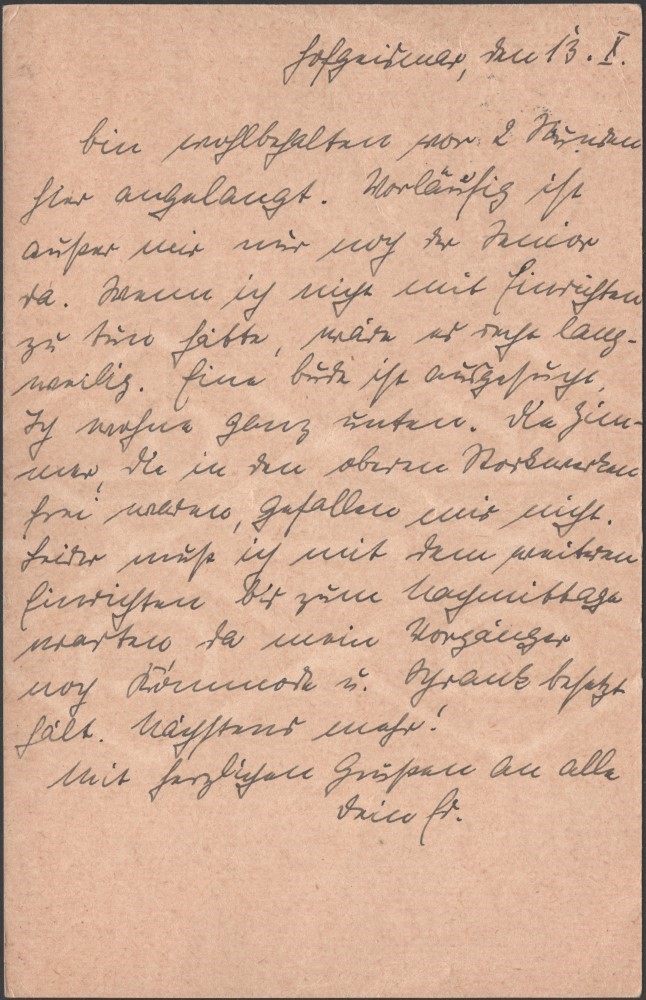 Hofgeismar, den 13. X.
bin wohlbehalten vor 2 Stunden
hier angelangt. Vorläufig ist
außer mir nur noch der Senior
da. Wenn ich nicht mit Einrichten
zu tun hätte, wäre es recht lang-
weilig. Eine Bude ist ausgesucht,
Ich wohne ganz unten. Die Zim-
mer, die in den oberen Stockwerken
frei waren, gefallen mir nicht.
Leider muß ich mit dem weiteren
Einrichten bis zum Nachmittage
warten da mein Vorgänger
noch Kommode u. Schrank besetzt
hält. Nächstens mehr!
Mit herzlichen Grüßen an alle
Dein